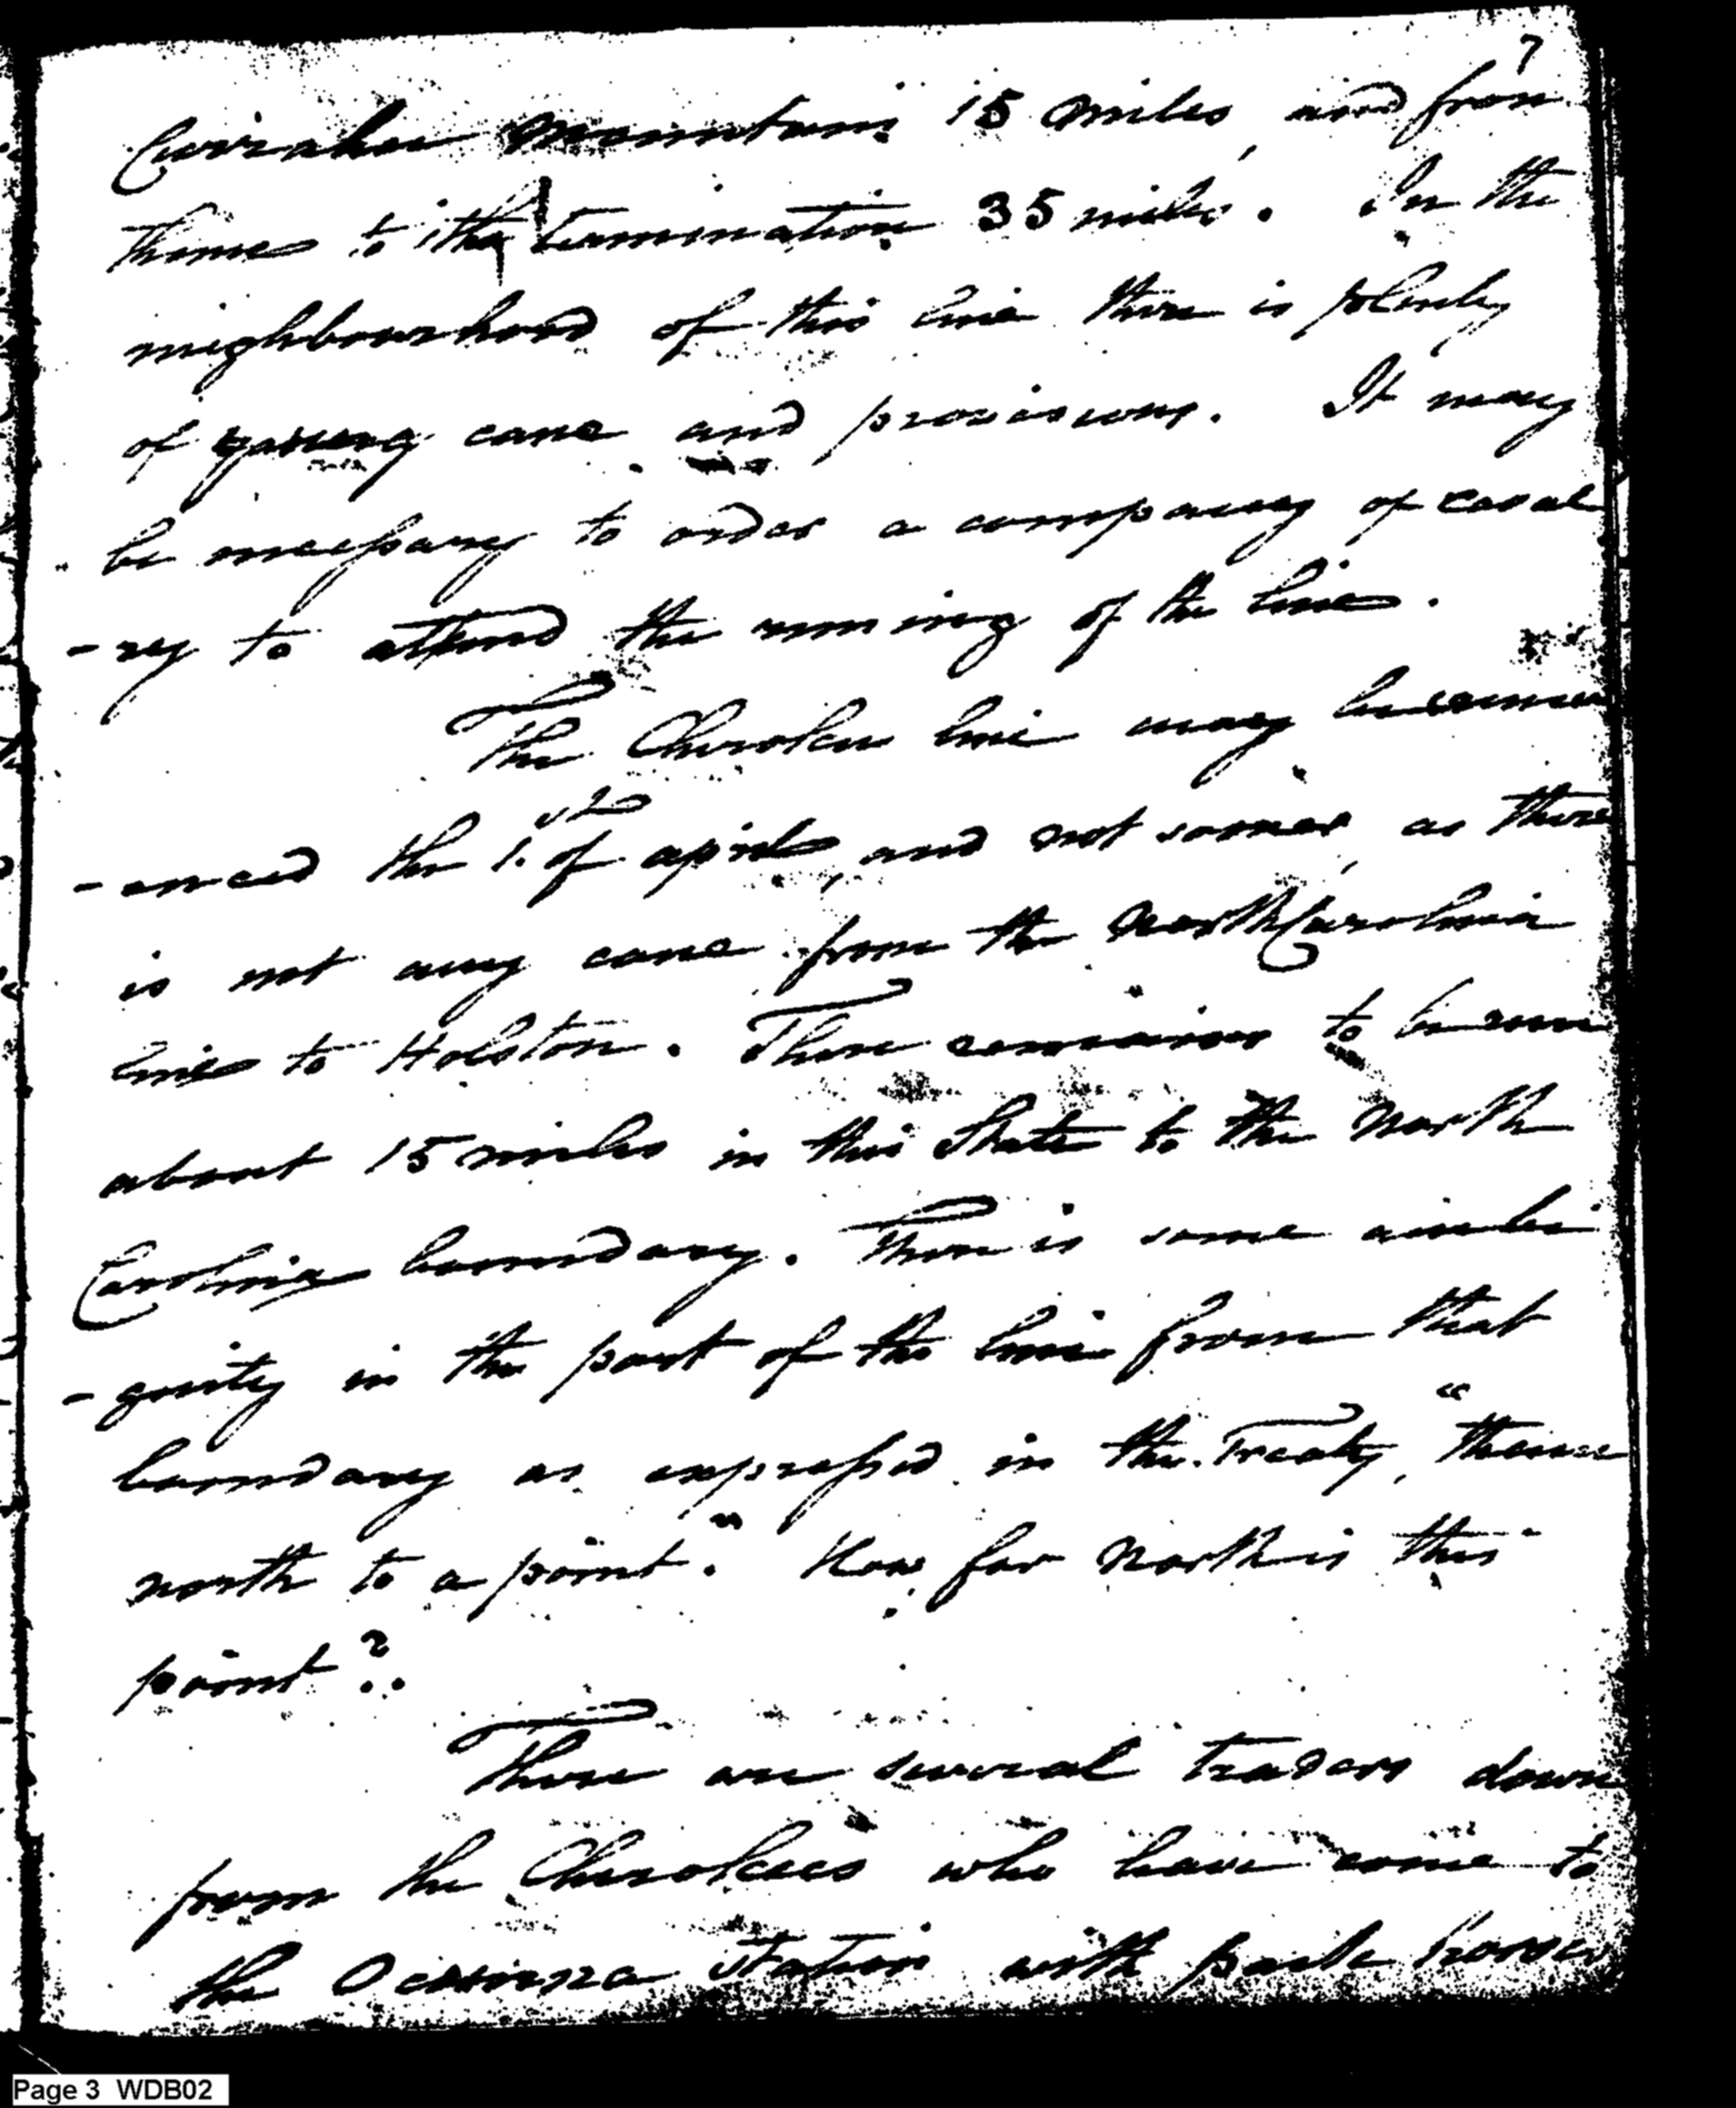 7
Currahee Mountain 15 miles, and from
thence to its termination 35 miles. In the
neighbourhood of this line there is plenty
of young cane and provisions. It may
be necessary to order a company of caval
-ry to attend the running of the line.
The Cherokee line may be comm
-enced the 1.st of april, and not sooner, as there
is not any cane from the North Carolina
line to Holston. There remains to be run
about 15 miles in this State to the North
Carolina boundary. There is some ambi
-guity in the part of the line from that
boundary as expressed in the Treaty, "thence
north to a point." How far North is this
point?.
There are several traders down
from the Cherokees who have come to
the Ocunna station with pack horses
Page 3 WDB02